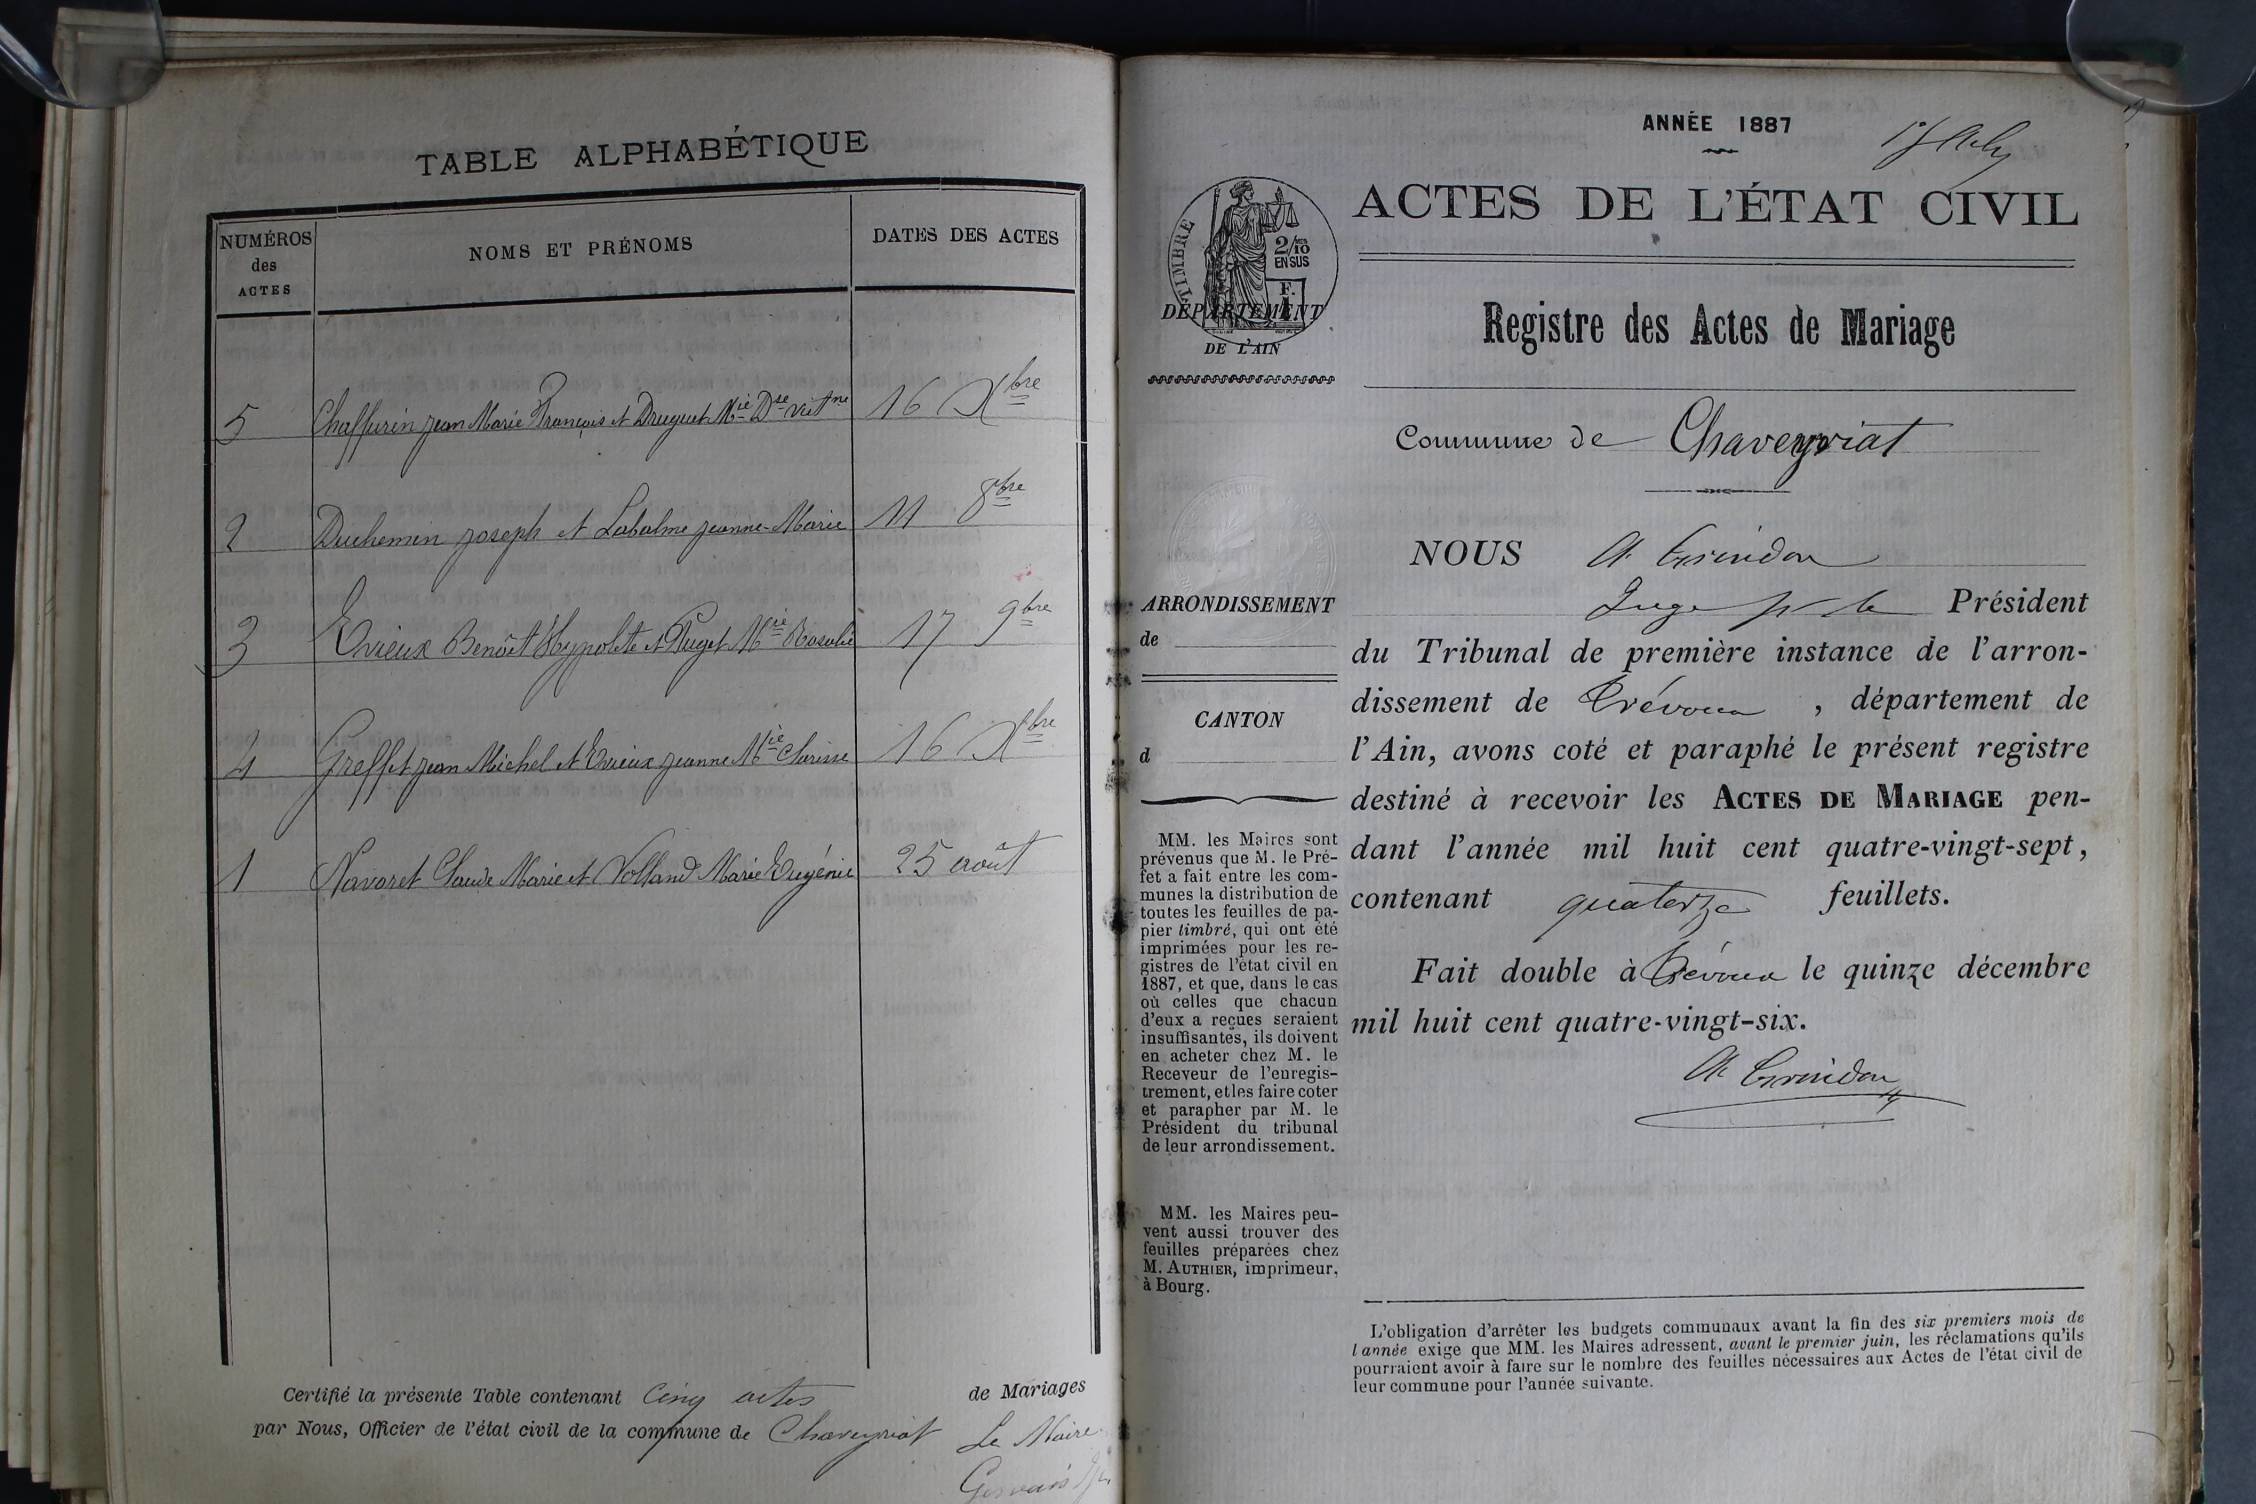 TABLE ALPHABÉTIQUE
NUMÉROS
des
ACTES
NOMS ET PRÉNOMS
DATES DES ACTES
5 Chaffurin Jean Marie François et Druguet Mie Dse Vict.ne 16 Xbre
2 Duchemin Joseph et Labalme Jeanne-Marie 11 8bre
3 Evieux Benoît Hypolite et Puget Mie Rosalie 17 9bre
4 Greffet Jean Michel et Evieux Jeanne Mie Clarisse 16 Xbre
1 Navoret Claude Marie et Volland Marie Eugénie 25 août
Certifié la présente Table contenant Cinq actes de Mariages
par Nous, Officier de l'état civil de la commune de Chaveyriat Le Maire
Gervais
ANNÉE 1887
TIMBRE
2/10
EN SUS
F.
1
DÉPARTEMENT
DE L'AIN
ARRONDISSEMENT
de
CANTON
d
MM. les Maires sont
prévenus que M. le Pré-
fet a fait entre les com-
munes la distribution de
toutes les feuilles de pa-
pier timbré, qui ont été
imprimées pour les re-
gistres de l'état civil en
1887, et que, dans le cas
où celles que chacun
d'eux a reçues seraient
insuffisantes, ils doivent
en acheter chez M. le
Receveur de l'enregis-
trement, et les faire coter
et parapher par M. le
Président du tribunal
de leur arrondissement.
MM. les Maires peu-
vent aussi trouver des
feuilles préparées chez
M. AUTHIER, imprimeur,
à Bourg.
ACTES DE L'ÉTAT CIVIL
Registre des Actes de Mariage
Commune de Chaveyriat
NOUS A. Grindon
Juge pr le Président
du Tribunal de première instance de l'arron-
dissement de Trévoux, département de
l'Ain, avons coté et paraphé le présent registre
destiné à recevoir les ACTES DE MARIAGE pen-
dant l'année mil huit cent quatre-vingt-sept,
contenant quatorze feuillets.
Fait double à Trévoux le quinze décembre
mil huit cent quatre-vingt-six.
A. Grindon
L'obligation d'arrêter les budgets communaux avant la fin des six premiers mois de
l'année exige que MM. les Maires adressent, avant le premier juin, les réclamations qu'ils
pourraient avoir à faire sur le nombre des feuilles nécessaires aux Actes de l'état civil de
leur commune pour l'année suivante.